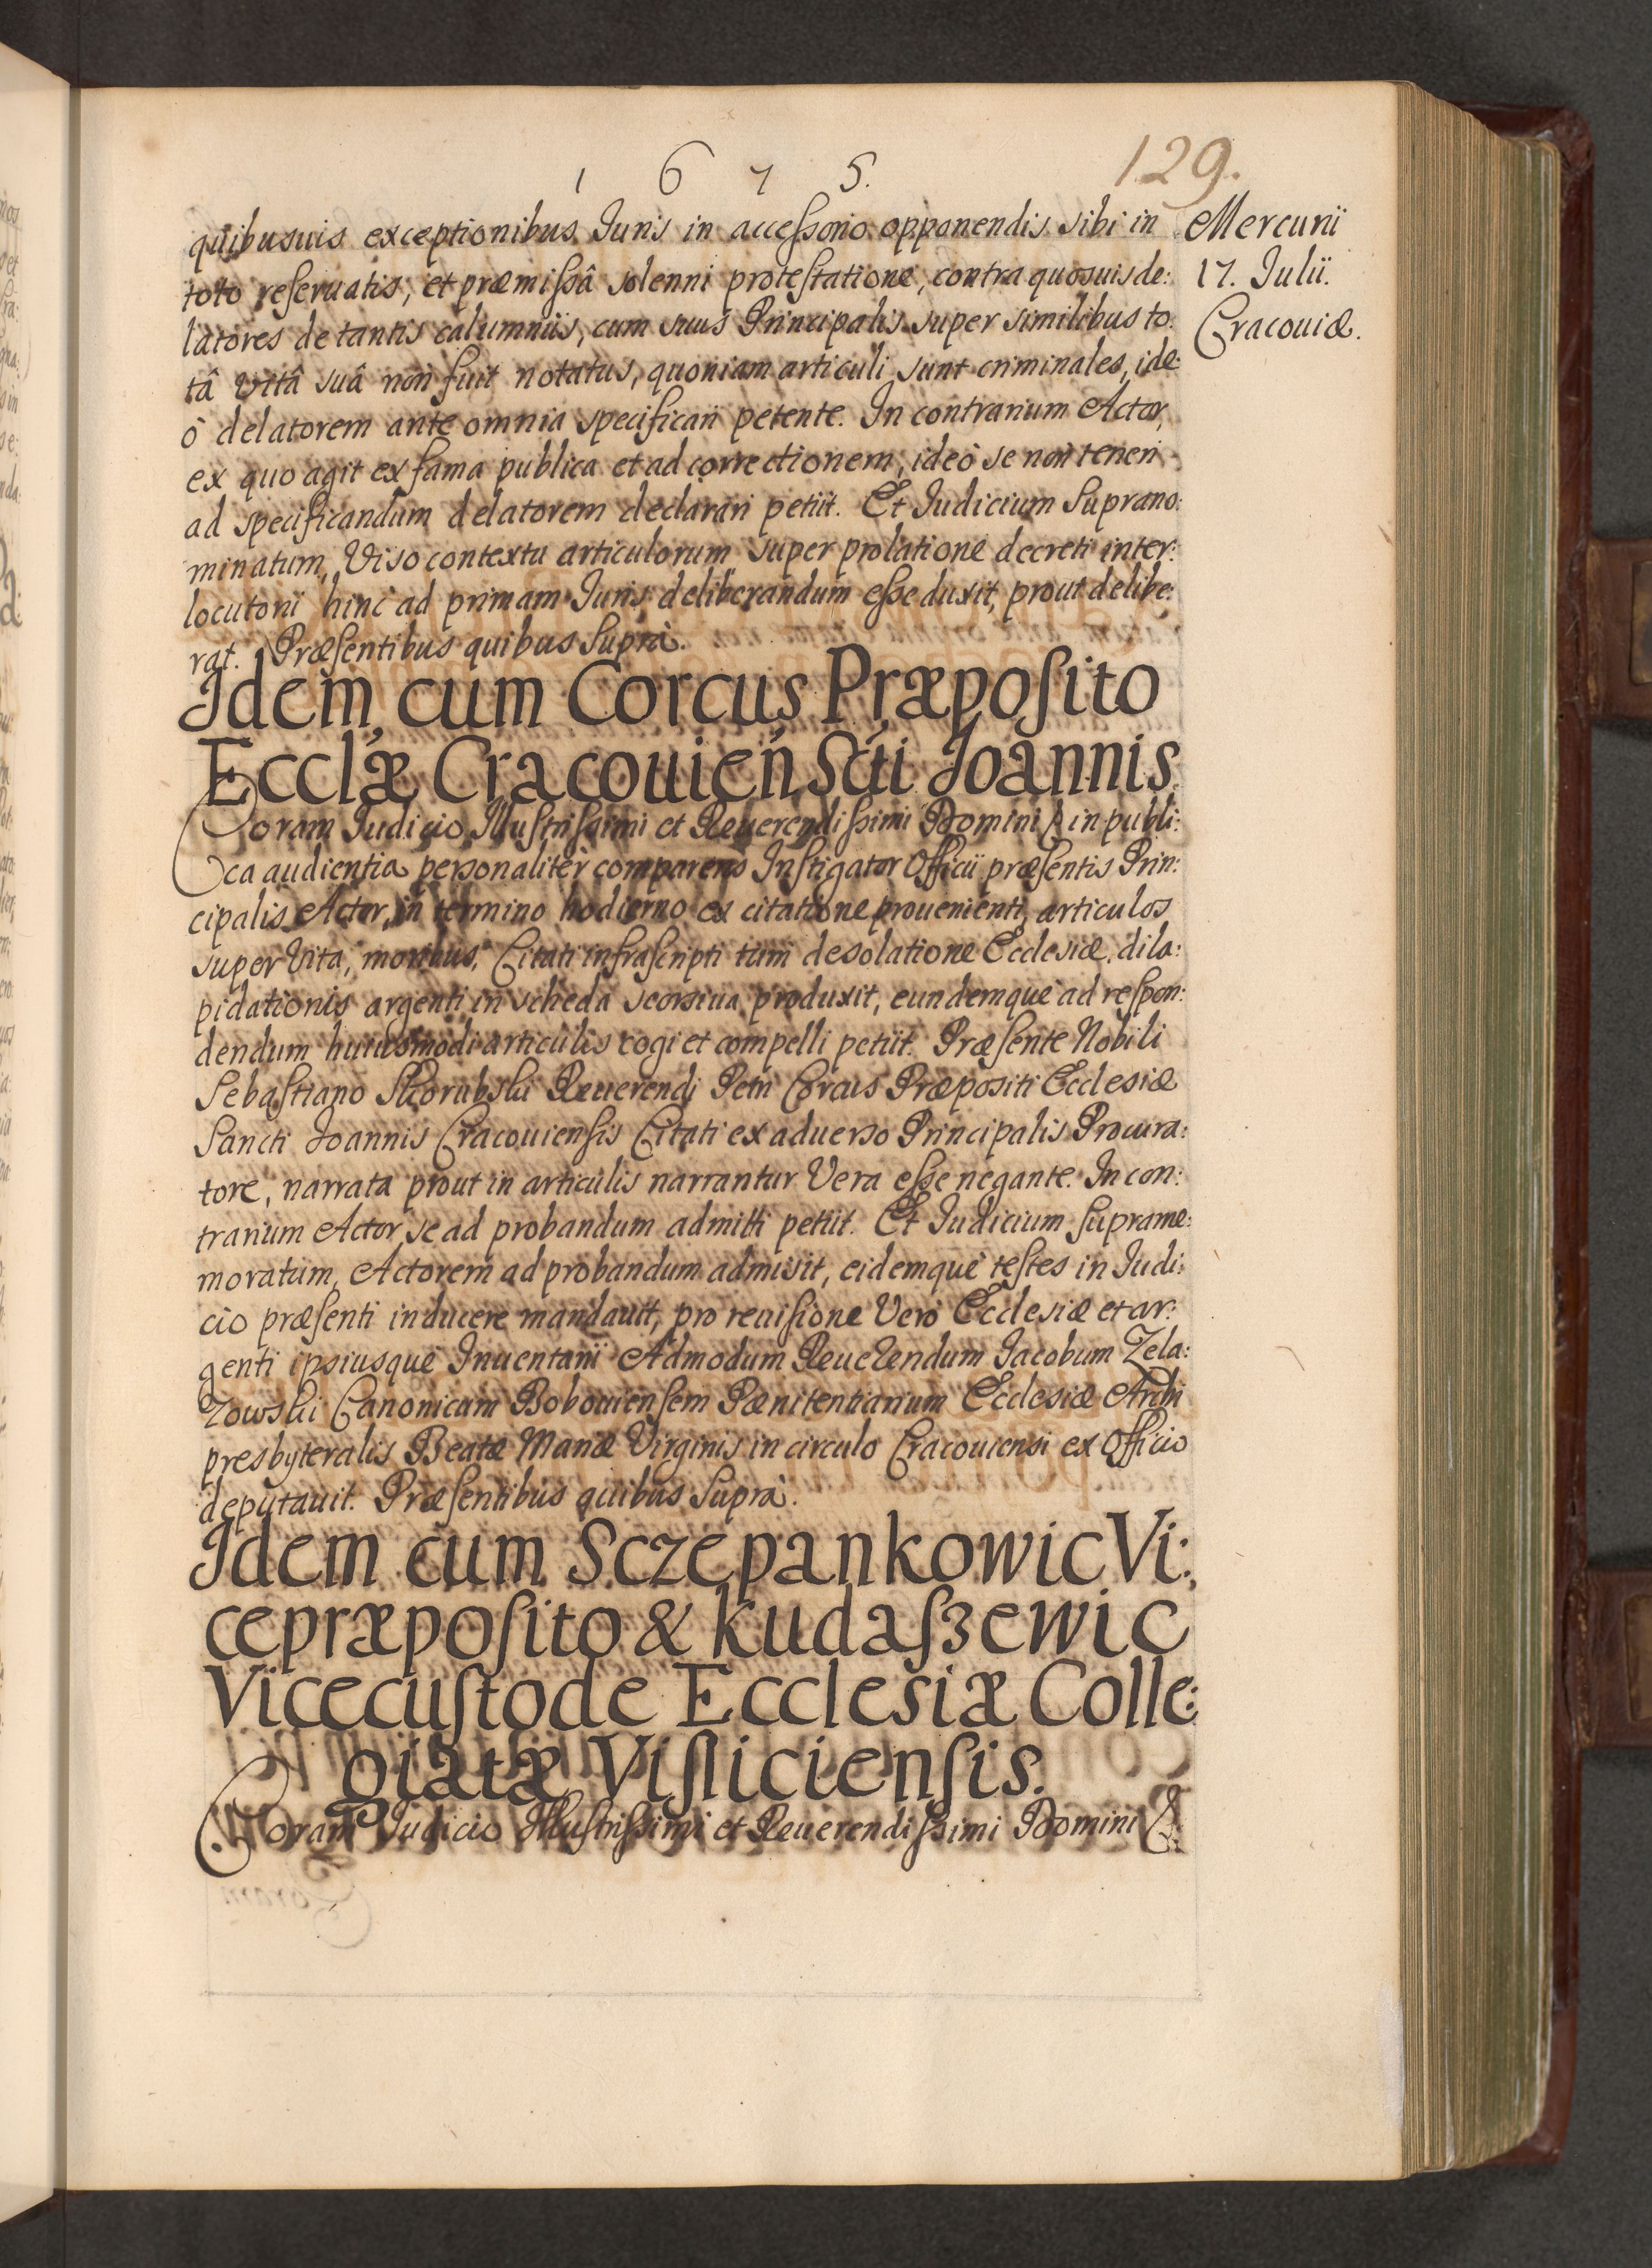 1 6 7 5.
129.
Mercurii
17. Julii.
Cracouiæ.
quibusuis exceptionibus Juris in accessorio opponendis sibi in
toto reseruatis, et præmissâ solenni protestatione, contra quosuis de:
latores de tantis calumniis, cum suus Principalis super similibus to:
tâ vitâ suâ non fuit notatus, quoniam articuli sunt criminales, ide:
ò delatorem ante omnia specificari petente. In contrarium Actor,
ex quo agit ex fama publica et ad correctionem, ideò se non teneri
ad specificandum delatorem declarari petiit. Et Judicium Suprano:
minatum, Viso contextu articulorum super prolatione decreti inter:
locutorii hinc ad primam Juris deliberandum esse duxit, prout delibe:
rat. Præsentibus quibus Suprà.
Idem cum Corcus Præposito
Ecclæ Cracouien Scti Joannis.
Coram Judicio Illustrissimi et Reuerendissimi Domini & in publi:
ca audientia personaliter comparens Instigator Officii præsentis Prin:
cipalis Actor, in termino hodierno ex citatione prouenienti, articulos
super Vita, moribus, Citati infrascripti tum desolatione Ecclesiæ, dila:
pidationis argenti in scheda seorsiua produxit, eundemque ad respon:
dendum huiusmodi articulis cogi et compelli petiit. Præsente Nobili
Sebastiano Skorubski Reuerendi Petri Corcus Præpositi Ecclesiæ
Sancti Joannis Cracouiensis Citati ex aduerso Principalis Procura:
tore, narrata prout in articulis narrantur Vera esse negante. In con:
trarium Actor se ad probandum admitti petiit. Et Judicium Suprame:
moratum, Actorem ad probandum admisit, eidemque testes in Judi:
cio præsenti inducere mandauit, pro reuisione Vero Ecclesiæ et ar:
genti ipsiusque Inuentarii Admodum Reuerendum Jacobum Zela:
zowski Canonicum Bobouiensem Pænitentiarium Ecclesiæ Archi
presbyteralis Beatæ Mariæ Virginis in circulo Cracouiensi ex Officio
deputauit. Præsentibus quibus Suprà.
Idem cum Sczepankowic Vi:
cepræposito & Kudaszewic
Vicecustode Ecclesiæ Colle:
giatæ Visliciensis.
Coram Judicio Illustrissimi et Reuerendissimi Domini &